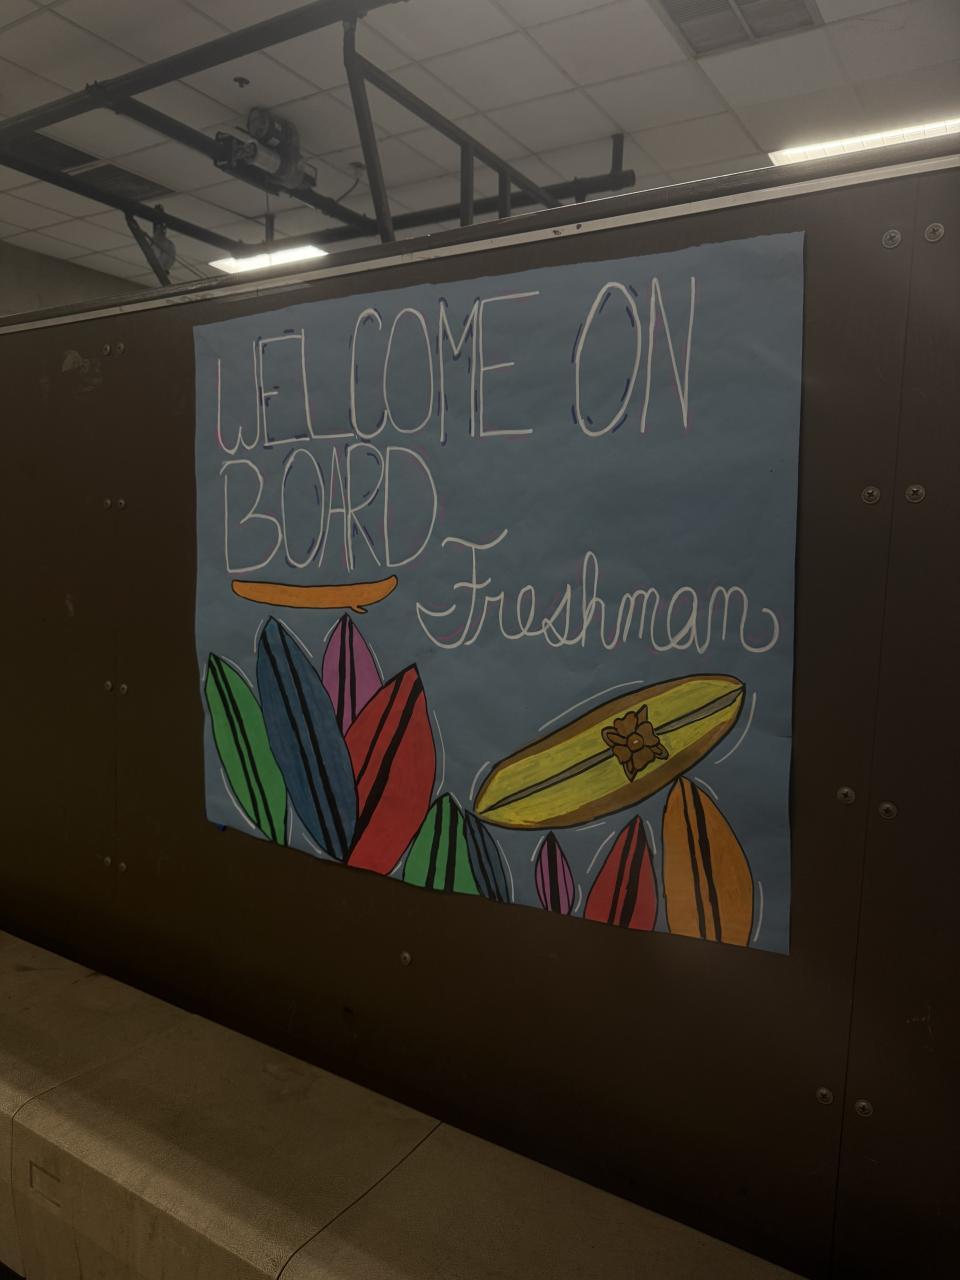 WELCOME ON
BOARD
Freshman